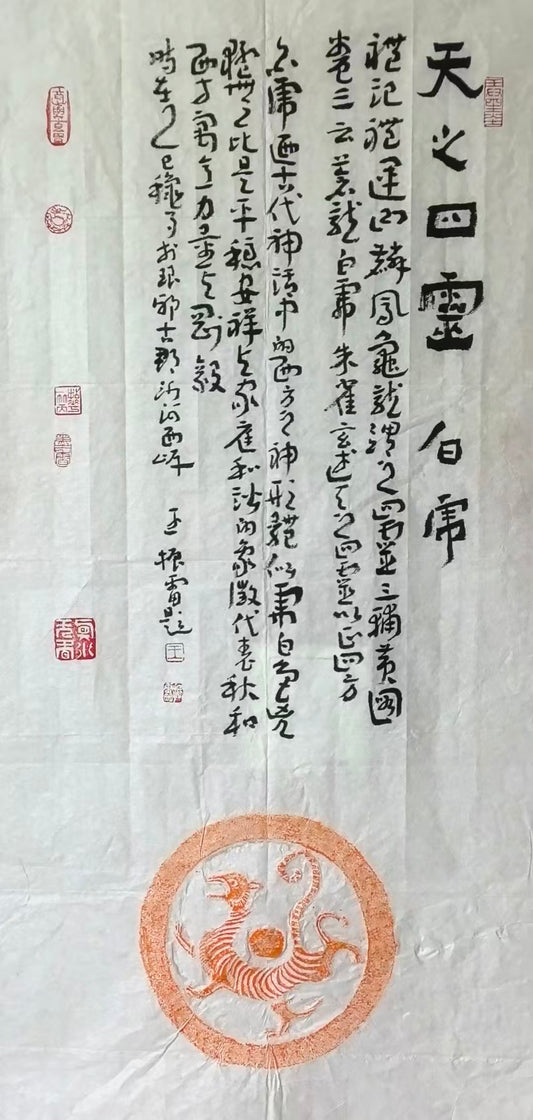 天之四靈 白虎
禮記禮運曰麟鳳龜龍謂之四靈三輔黃圖
卷三云蒼龍白虎朱雀玄武天之四靈以正四方
白虎迺古代神話中的西方之神形體似虎白色
之比是平穩安祥與家庭和諧的象徵代表秋和
西方寓意力量與剛毅
時在乙巳穐月於琅邪古郡沂河西岸
王振雷題